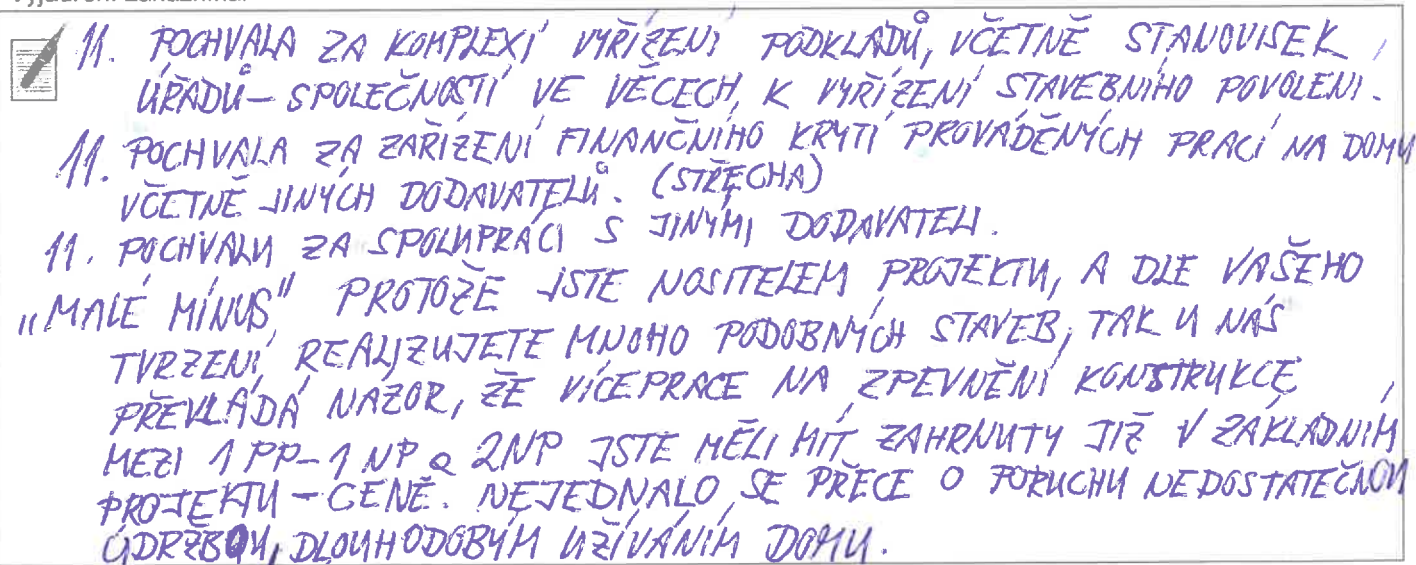 Vyjádření zákazníka:
11. POCHVALA ZA KOMPLEXÍ VYŘÍZENÍ PODKLADŮ, VČETNĚ STANOVISEK
ÚŘADŮ – SPOLEČNOSTÍ VE VĚCECH, K VYŘÍZENÍ STAVEBNÍHO POVOLENÍ.
11. POCHVALA ZA ZAŘÍZENÍ FINANČNÍHO KRYTÍ PROVÁDĚNÝCH PRACÍ NA DOMU
VČETNĚ JINÝCH DODAVATELŮ. (STŘECHA)
11. POCHVALU ZA SPOLUPRÁCI S JINÝMI DODAVATELI.
„MALÉ MÍNUS" PROTOŽE JSTE NOSITELEM PROJEKTU, A DLE VAŠEHO
TVRZENÍ, REALIZUJETE MNOHO PODOBNÝCH STAVEB, TAK U NÁS
PŘEVLÁDÁ NÁZOR, ŽE VÍCEPRACE NA ZPEVNĚNÍ KONSTRUKCE
MEZI 1PP–1NP a 2NP JSTE MĚLI MÍT ZAHRNUTY JIŽ V ZÁKLADNÍM
PROJEKTU – CENĚ. NEJEDNALO SE PŘECE O PORUCHU NEDOSTATEČNOU
ÚDRŽBOU, DLOUHODOBÝM UŽÍVÁNÍM DOMU.